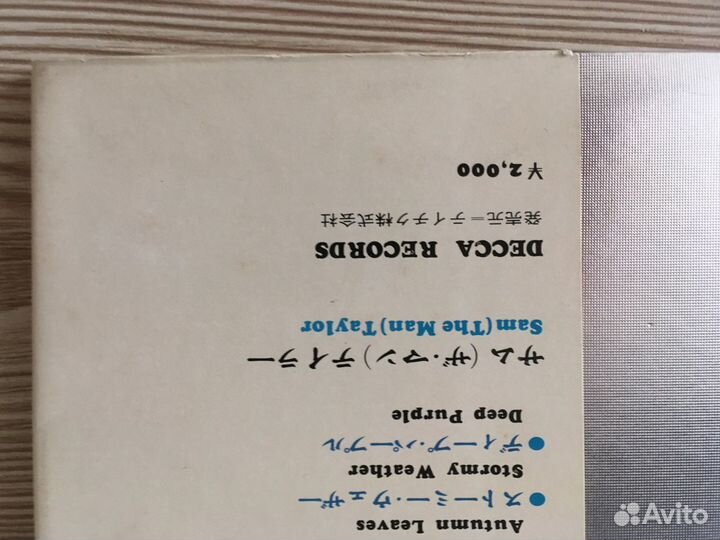 Autumn Leaves
●ストーミー・ウェザー
Stormy Weather
●ディープ・パープル
Deep Purple
サム(ザ・マン)テイラー
Sam(The Man)Taylor
DECCA RECORDS
発売元=テイチク株式会社
¥2,000
Avito